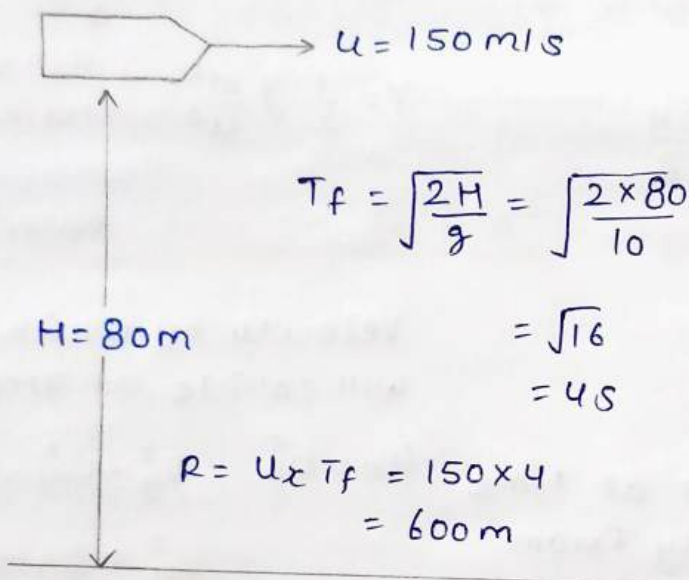 u = 150 m/s
T_f = √(2H/g) = √(2×80/10)
H = 80m
= √16
= 4s
R = u_x T_f = 150×4
= 600m